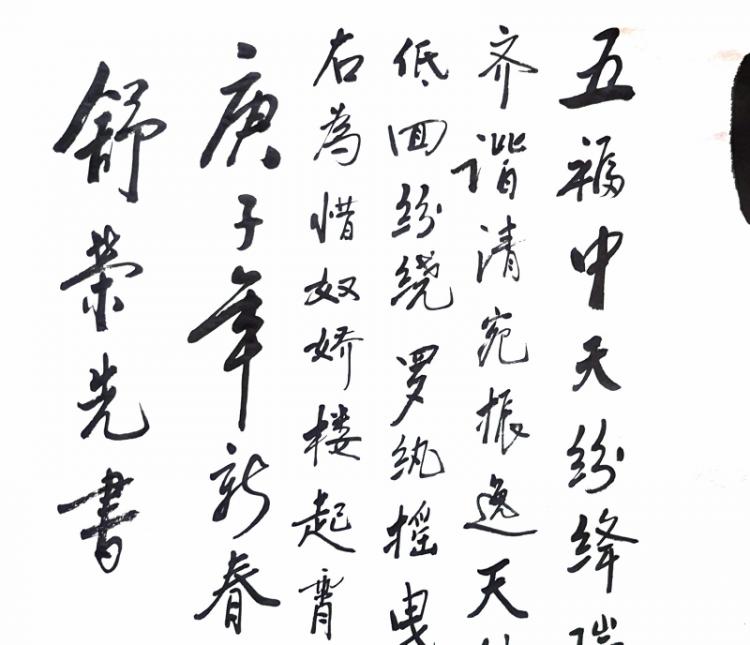 五福中天纷绛
齐谐清宛振逸天
低回纷绕罗纨摇曳
右为惜奴娇楼起霄
庚子年新春
舒荣先书